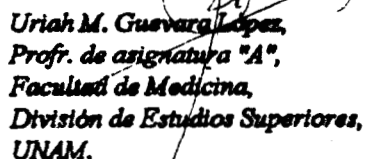 Uriah M. Guevara López,
Profr. de asignatura "A",
Facultad de Medicina,
División de Estudios Superiores,
UNAM.